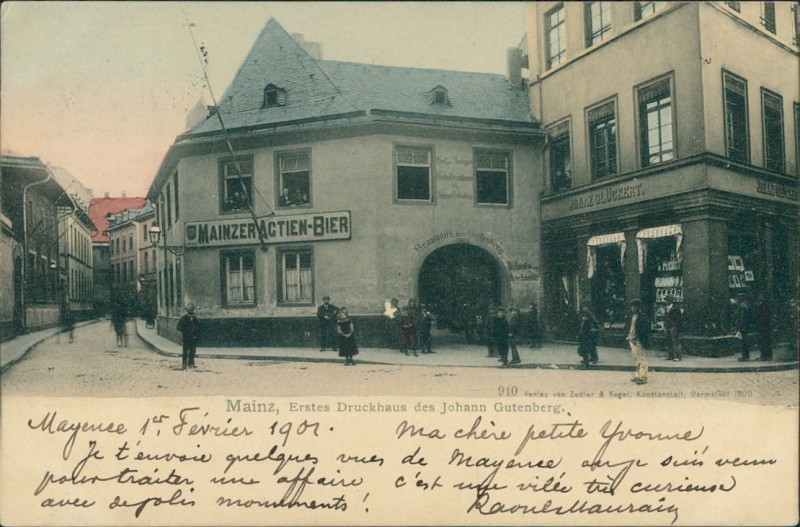 MAINZER ACTIEN-BIER
Hof zum Jungen
Brauhaus zum Gutenberg
IGNAZ GLÜCKERT.
910 Verlag von Zedler & Vogel, Kunstanstalt, Darmstadt 1900
Mainz, Erstes Druckhaus des Johann Gutenberg.
Mayence 1er Février 1901. Ma chère petite Yvonne
Je t'envoie quelques vues de Mayence où je suis venu
pour traiter une affaire c'est une ville très curieuse
avec de jolis monuments! Raoul Maurain